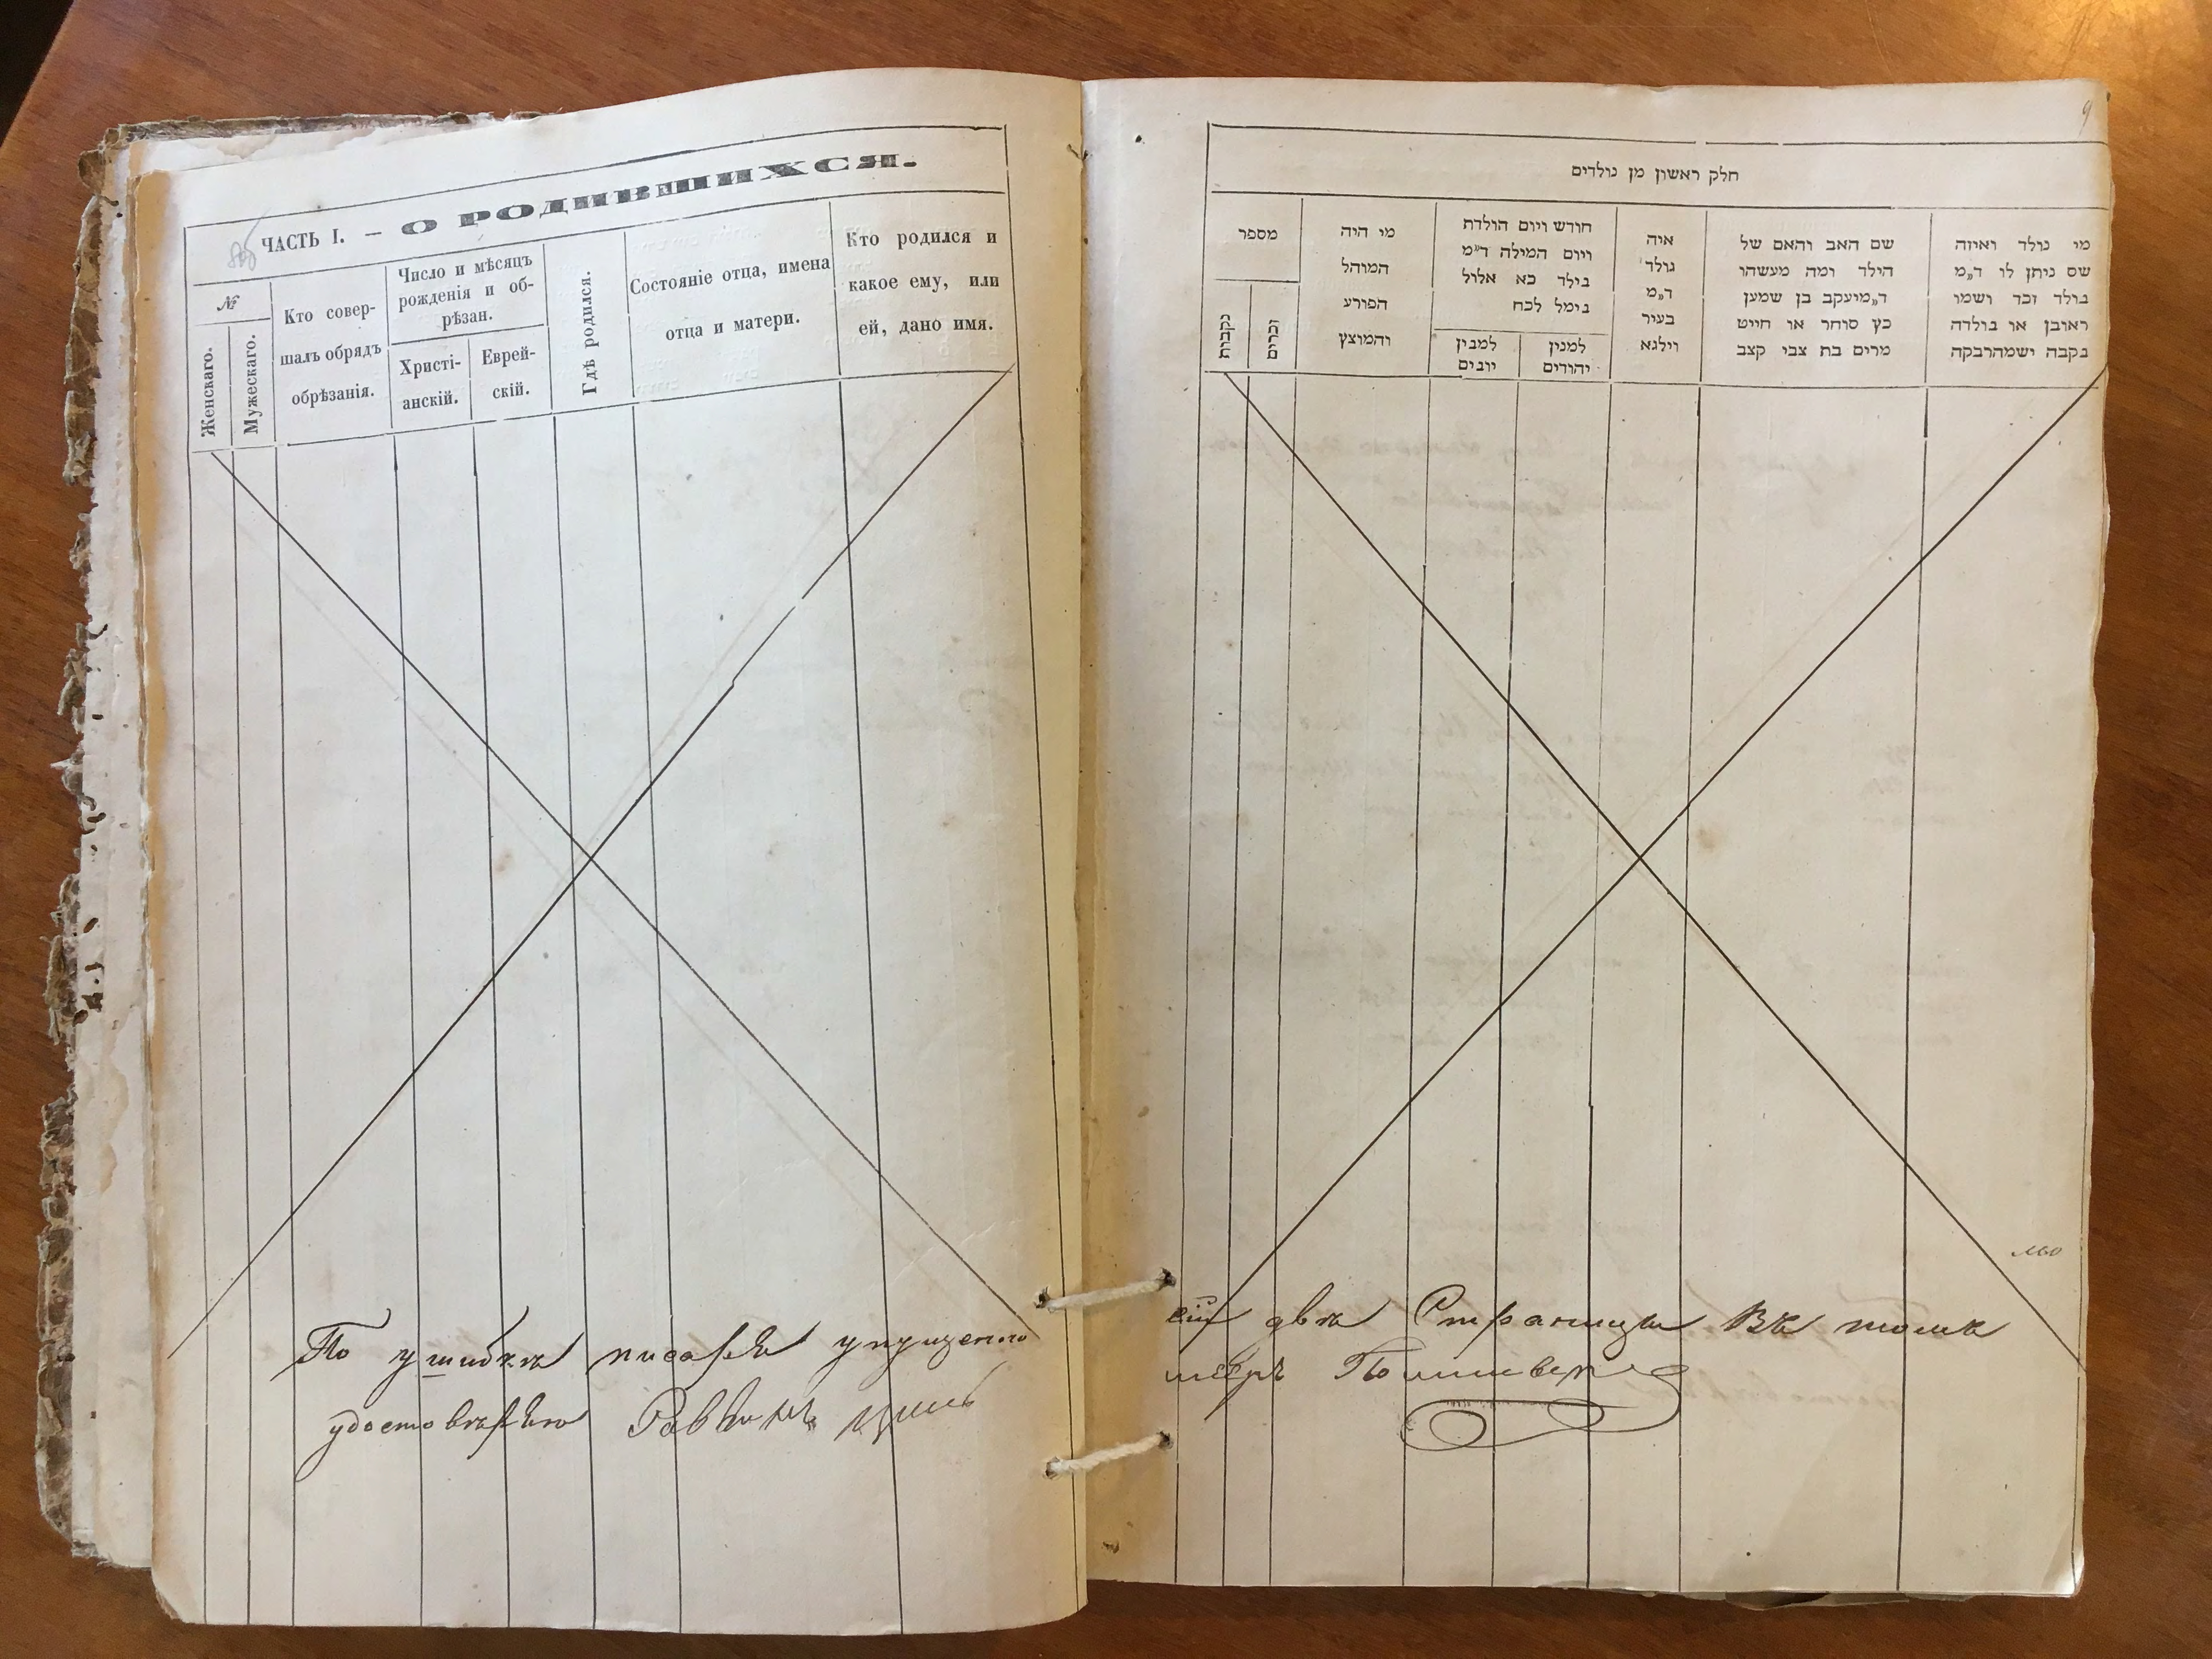 ЧАСТЬ I. — О РОДИВШИХСЯ.
№
Женскаго.
Мужескаго.
Кто совер-
шалъ обрядъ
обрѣзанія.
Число и мѣсяцъ
рожденія и об-
рѣзан.
Христі-
анскій.
Еврей-
скій.
Гдѣ родился.
Состояніе отца, имена
отца и матери.
Кто родился и
какое ему, или
ей, дано имя.
По ушибкѣ писаря упущенно
удостовѣряю Раввинъ
9
חלק ראשון מן נולדים
מי נולד ואיזה
שם ניתן לו ד״מ
בולד זכר ושמו
ראובן או בולדה
נקבה ישמהרבקה
שם האב והאם של
הילד ומה מעשהו
ד״מיעקב בן שמעון
כץ סוחר או חייט
מרים בת צבי קצב
איה
נולד
ד״מ
בעיר
וילנא
חודש ויום הולדת
ויום המילה ד״מ
בילד כא אלול
נימל לכח
למנין
יהודים
למנין
יונים
מי היה
המוהל
הפורע
והמוצץ
מספר
זכרים
נקבות
сіи двѣ Страницы въ томъ